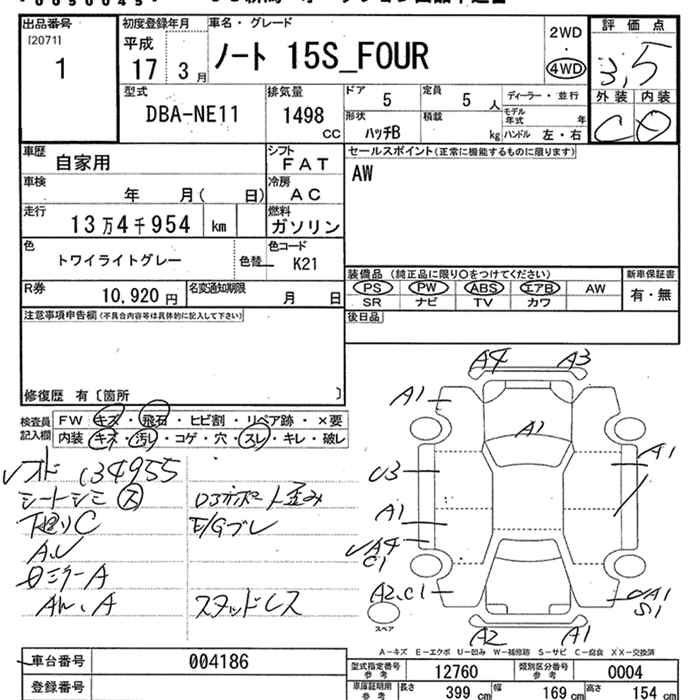 出品番号 [20711]
1
初度登録年月
平成
17 3月
車名・グレード
ノート 15S_FOUR
2WD
・
4WD
評価点
3.5
外装 内装
C D
型式
DBA-NE11
排気量
1498 CC
ドア 5
定員 5 人
ディーラー・並行
形状
ハッチB
積載 kg
モデル年式 年
ハンドル 左・右
車歴
自家用
シフト
FAT
セールスポイント(正常に機能するものに限ります)
AW
車検
年 月( 日)
冷房
AC
走行
13万4千954 km
燃料
ガソリン
色
トワイライトグレー
色替
色コード
K21
装備品 (純正品に限り○をつけてください)
PS PW ABS エアB AW
SR ナビ TV カワ
新車保証書
有・無
R券
10,920 円
名変通知期限
月 日
後日品
注意事項申告欄(不具合内容等は具体的に記入して下さい)
修復歴 有〔箇所 〕
検査員記入欄
FW キズ・飛石・ヒビ割・リペア跡・×要
内装 キズ・汚レ・コゲ・穴・スレ・キレ・破レ
134955
シートシミ ス
下廻りC
E/Gブレ
ミラーA
スタッドレス
A4 A3
A1
A1
A1
U3
A1
A4
C1
A2.C1
A1
S1
スペア
A2 A1
A-キズ E-エクボ U-凹み W-補修跡 S-サビ C-腐食 XX-交換済
車台番号
004186
登録番号
型式指定番号 参考
12760
類別区分番号 参考
0004
車庫証明用 参考
長さ 399 cm
幅 169 cm
高さ 154 cm